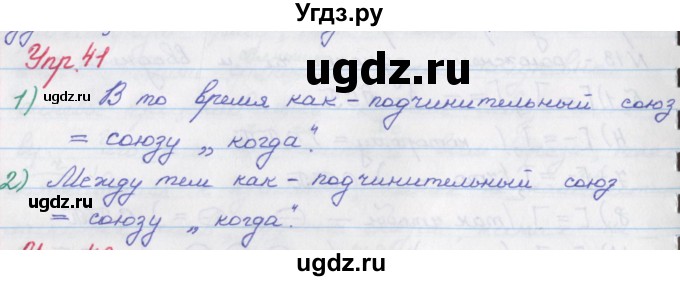 Угдз.ру
Упр. 41
ugdz.ru
ugdz.ru
1) В то время как - подчинительный союз
= союзу „когда".
ugdz.ru
2) Между тем как - подчинительный союз
= союзу „когда".
ugdz.ru
ugdz.ru
ugdz.ru